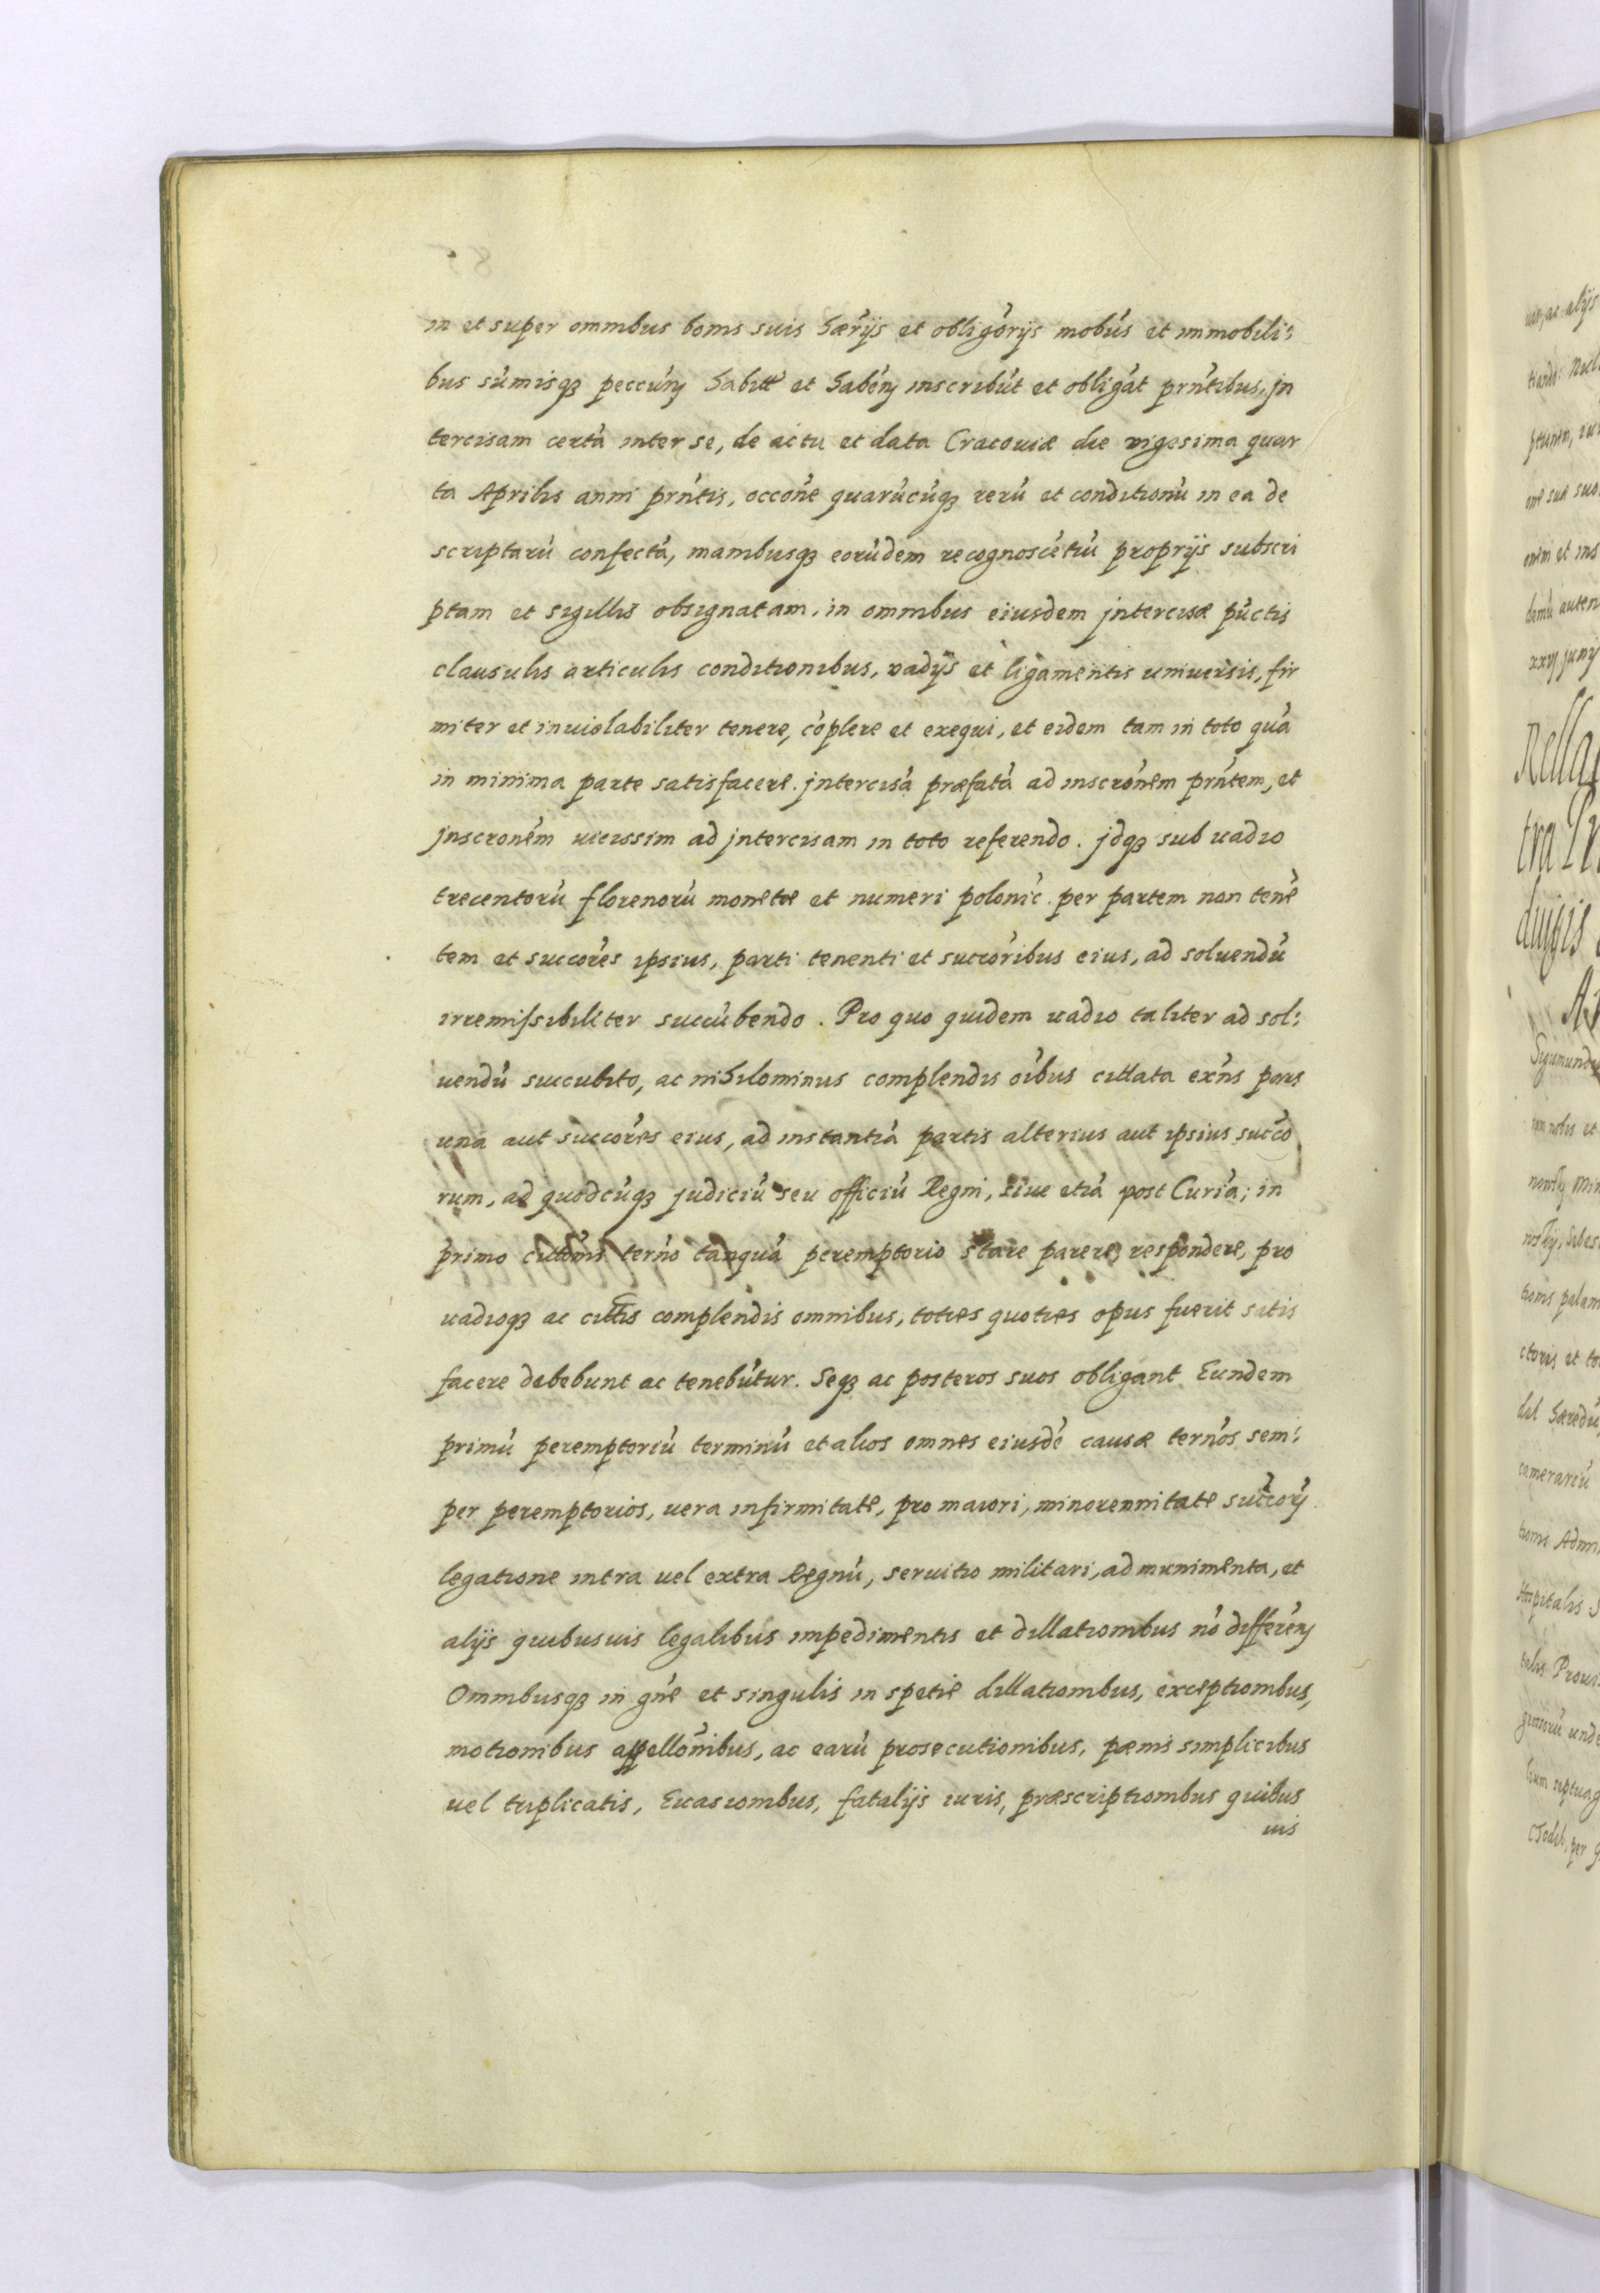 in et super omnibus bonis suis hær̃ijs et obligõrijs mob́us et immobili:
bus sum̃isqꝫ peccuñ habitt et habeñ inscribũt et obligãt prñtibus, jn
tercisam certã inter se, de actu et data Cracoviæ die vigesima quar
ta Aprilis anni prñtis, occõne quarũcũqꝫ rerũ et conditionũ in ea de
scriptarũ confectã, manibusqꝫ eorũdem recognoscẽtiũ proprijs subscri
ptam et sigillis obsignatam, in omnibus eiusdem jntercisæ pũctis
clausulis articulis conditionibus, vadijs et ligamentis universis, fir
miter et inviolabiliter tenere, cõplere et exequi, et eidem tam in toto quã
in minima parte satisfacere. jntercisã præfatã ad inscrõnem prñtem, et
jnscronẽm vicissim ad jntercisam in toto referendo. jdqꝫ sub vadio
trecentorũ florenorũ monetæ et numeri polonic̃. per partem non tenẽ
tem et succõres ipsius, parti tenenti et succõribus eius, ad solvendũ
irremissibiliter succũbendo. Pro quo quidem vadio taliter ad sol:
uendũ succubito, ac nihilominus complendis oĩbus cittata exñs pars
una aut succõres eius, ad instantiã partis alterius aut ipsius succõ
rum, ad quodcũqꝫ judiciũ seu officiũ Regni, siue etiã post Curiã; in
primo citõnis ter̃no tanquã peremptorio stare parere respondere, pro
uadioqꝫ ac cittis complendis omnibus, toties quoties opus fuerit satis
facere debebunt ac tenebũtur. Seqꝫ ac posteros suos obligant Eundem
primũ peremptoriũ terminũ et alios omnes eiusdẽ causæ ter̃nos sem:
per peremptorios, uera infirmitate, pro maiori, minorennitate succor̃
legatione intra uel extra Regnũ, servitio militari, ad munimenta, et
alijs quibusuis legalibus impedimentis et dillationibus nõ differeñ
Omnibusqꝫ in gñe et singulis in spetie dillationibus, exceptionibus,
motionibus appellõnibus, ac earũ prosecutionibus, pænis simplicibus
uel triplicatis, Euasionibus, fatalijs iuris, præscriptionibus quibus
uis